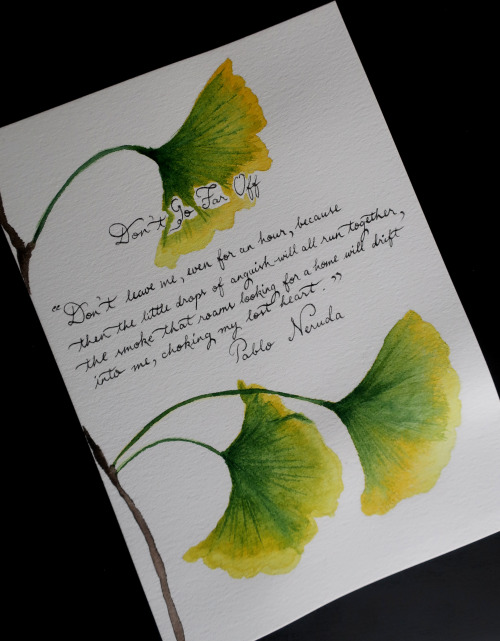 Don't Go Far Off
"Don't leave me, even for an hour, because
then the little drops of anguish will all run together,
the smoke that roams looking for a home will drift
into me, choking my lost heart."
Pablo Neruda